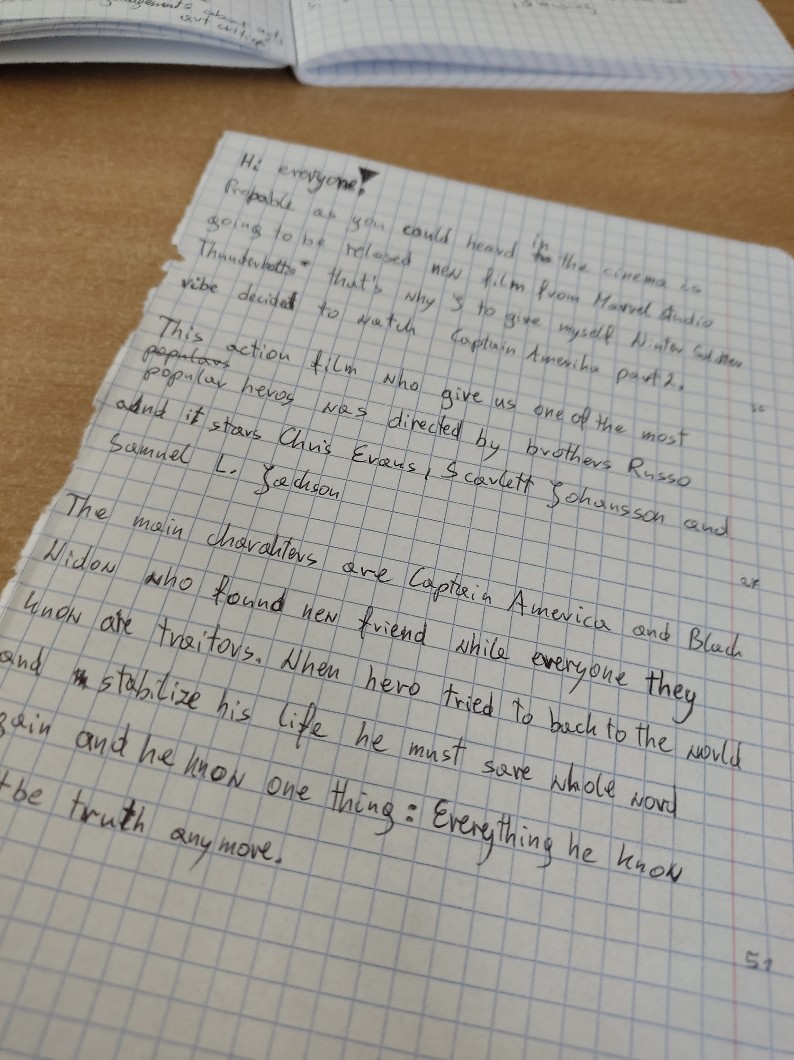 out
Hi everyone!
Propable as you could heard in the cinema is
going to be relased new film from Marvel studio
Thunderbolts* that's why I to give myself Winter
vibe decided to watch Captain Amerika part 2.
This action film who give us one of the most
populars
popular heros was directed by brothers Russo
and it stars Chris Evans, Scarlett Johansson and
Samuel L. Jackson
The main charakters are Captain America and Black
Widow who found new friend while everyone they
know are traitors. When hero tried to back to the world
and stabilize his life he must save whole word
gain and he know one thing: Everything he know
be truth anymore.
51